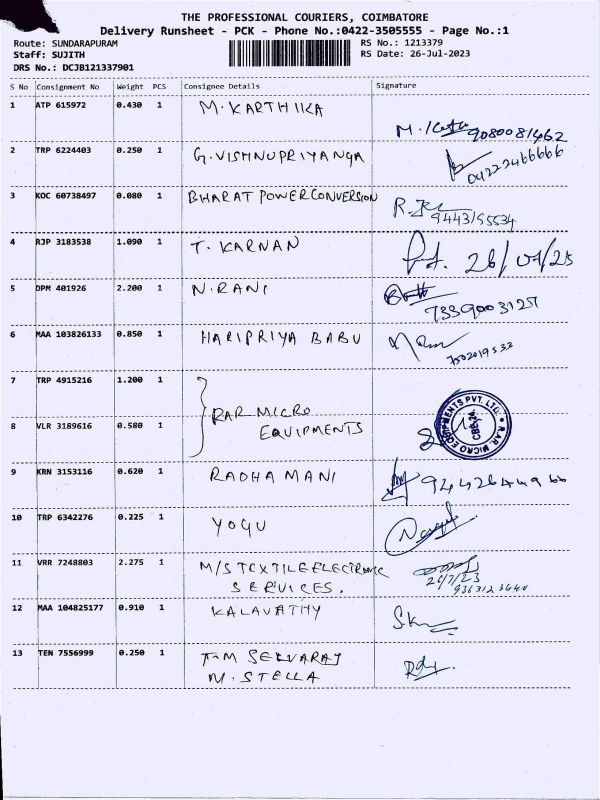 THE PROFESSIONAL COURIERS, COIMBATORE
Delivery Runsheet - PCK - Phone No.:0422-3505555 - Page No.:1
Route: SUNDARAPURAM
Staff: SUJITH
DRS No.: DCJB121337901
RS No.: 1213379
RS Date: 26-Jul-2023
S No Consignment No Weight PCS Consignee Details Signature
1 ATP 615972 0.430 1 M. KARTHIKA
9080081462
2 TRP 6224403 0.250 1 G. VISHNUPRIYANGA
04222466666
3 KOC 60738497 0.080 1 BHARAT POWER CONVERSION
9443195534
4 RJP 3183538 1.090 1 T. KARNAN
26/07/23
5 DPM 401926 2.200 1 N. RANI
7339003127
6 MAA 103826133 0.850 1 HARIPRIYA BABU
7502019533
7 TRP 4915216 1.200 1
RAR MICRO
EQUIPMENTS
8 VLR 3189616 0.580 1
RAR MICRO EQUIPMENTS PVT. LTD.
CBE-24.
9 KRN 3153116 0.620 1 RADHA MANI
10 TRP 6342276 0.225 1 YOGU
11 VRR 7248803 2.275 1 M/S TEXTILE ELECTRONIC
SERVICES.
26/7/23
12 MAA 104825177 0.910 1 KALAVATHY
13 TEN 7556999 0.250 1 T.M SELVARAJ
M. STELLA